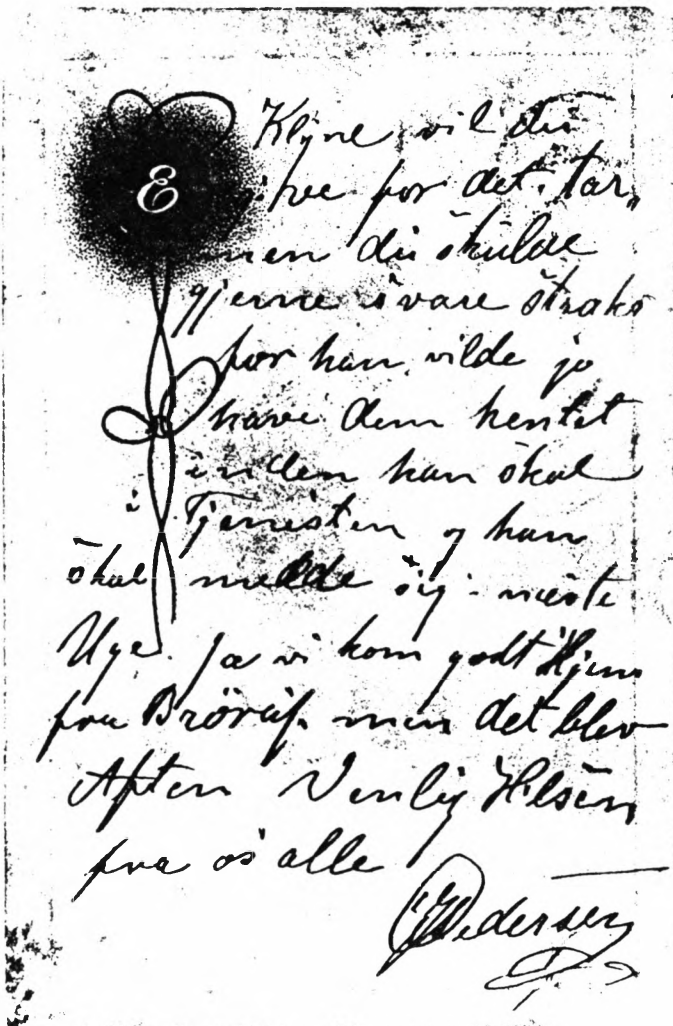 E
Klyne vil du
for det. Tør,
men du skulde
gjerne svare straks
for han vilde jo
have dem hentet
inden han skal
i Tjenesten og han
skal melde sig i næste
Uge. Ja vi kom godt Hjem
fra Brørup. men det blev
Aften Venlig Hilsen
fra os alle
Pedersen